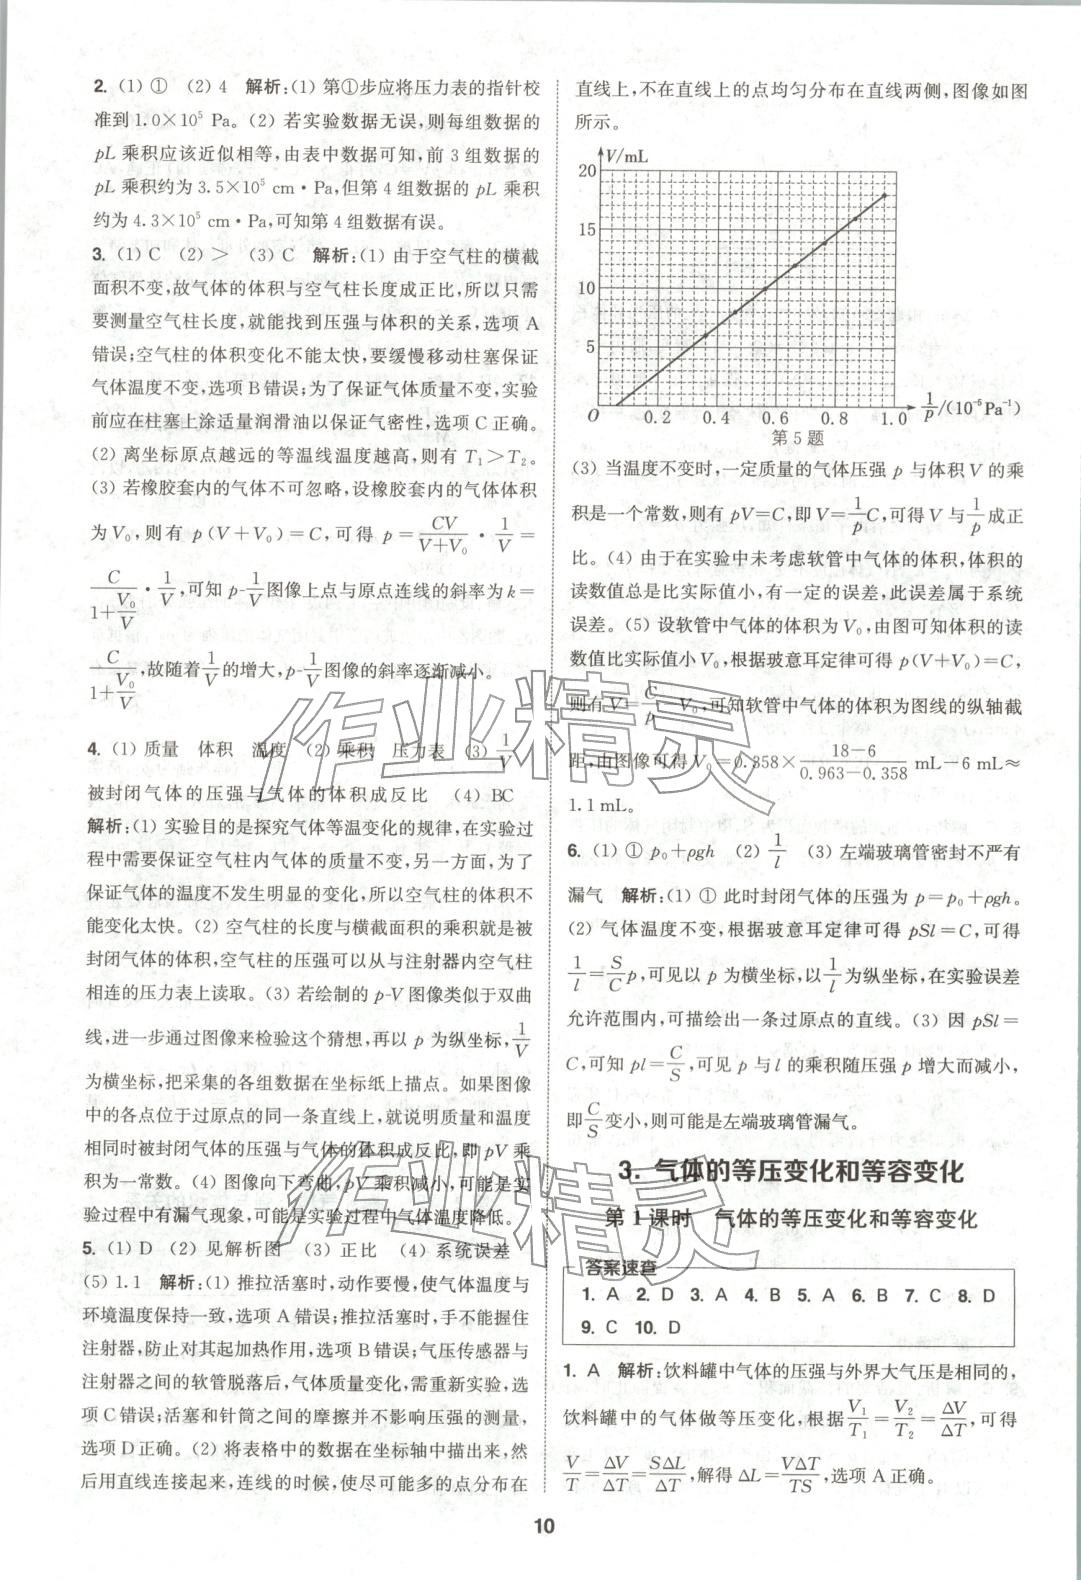 2. (1) ① (2) 4 解析:(1) 第①步应将压力表的指针校
准到 1.0×10⁵ Pa。(2) 若实验数据无误,则每组数据的
pL 乘积应该近似相等,由表中数据可知,前 3 组数据的
pL 乘积约为 3.5×10⁵ cm·Pa,但第 4 组数据的 pL 乘积
约为 4.3×10⁵ cm·Pa,可知第 4 组数据有误。
3. (1) C (2) > (3) C 解析:(1) 由于空气柱的横截
面积不变,故气体的体积与空气柱长度成正比,所以只需
要测量空气柱长度,就能找到压强与体积的关系,选项 A
错误;空气柱的体积变化不能太快,要缓慢移动柱塞保证
气体温度不变,选项 B 错误;为了保证气体质量不变,实验
前应在柱塞上涂适量润滑油以保证气密性,选项 C 正确。
(2) 离坐标原点越远的等温线温度越高,则有 T₁>T₂。
(3) 若橡胶套内的气体不可忽略,设橡胶套内的气体体积
为 V₀,则有 p(V+V₀)=C,可得 p=CV/(V+V₀)·1/V=
C/(1+V₀/V)·1/V,可知 p-1/V 图像上点与原点连线的斜率为 k=
C/(1+V₀/V),故随着 1/V 的增大,p-1/V 图像的斜率逐渐减小。
4. (1) 质量 体积 温度 (2) 乘积 压力表 (3) 1/V
被封闭气体的压强与气体的体积成反比 (4) BC
解析:(1) 实验目的是探究气体等温变化的规律,在实验过
程中需要保证空气柱内气体的质量不变,另一方面,为了
保证气体的温度不发生明显的变化,所以空气柱的体积不
能变化太快。(2) 空气柱的长度与横截面积的乘积就是被
封闭气体的体积,空气柱的压强可以从与注射器内空气柱
相连的压力表上读取。(3) 若绘制的 p-V 图像类似于双曲
线,进一步通过图像来检验这个猜想,再以 p 为纵坐标,1/V
为横坐标,把采集的各组数据在坐标纸上描点。如果图像
中的各点位于过原点的同一条直线上,就说明质量和温度
相同时被封闭气体的压强与气体的体积成反比,即 pV 乘
积为一常数。(4) 图像向下弯曲,pV 乘积减小,可能是实
验过程中有漏气现象,可能是实验过程中气体温度降低。
5. (1) D (2) 见解析图 (3) 正比 (4) 系统误差
(5) 1.1 解析:(1) 推拉活塞时,动作要慢,使气体温度与
环境温度保持一致,选项 A 错误;推拉活塞时,手不能握住
注射器,防止对其起加热作用,选项 B 错误;气压传感器与
注射器之间的软管脱落后,气体质量变化,需重新实验,选
项 C 错误;活塞和针筒之间的摩擦并不影响压强的测量,
选项 D 正确。(2) 将表格中的数据在坐标轴中描出来,然
后用直线连接起来,连线的时候,使尽可能多的点分布在
直线上,不在直线上的点均匀分布在直线两侧,图像如图
所示。
V/mL
20
15
10
5
O 0.2 0.4 0.6 0.8 1.0 1/p/(10⁻⁵Pa⁻¹)
第 5 题
(3) 当温度不变时,一定质量的气体压强 p 与体积 V 的乘
积是一个常数,则有 pV=C,即 V=1/p C,可得 V 与 1/p 成正
比。(4) 由于在实验中未考虑软管中气体的体积,体积的
读数值总是比实际值小,有一定的误差,此误差属于系统
误差。(5) 设软管中气体的体积为 V₀,由图可知体积的读
数值比实际值小 V₀,根据玻意耳定律可得 p(V+V₀)=C,
则有 V=C/p-V₀,可知软管中气体的体积为图线的纵轴截
距,由图像可得 V₀=0.358×(18-6)/(0.963-0.358) mL-6 mL≈
1.1 mL。
6. (1) ① p₀+ρgh (2) 1/l (3) 左端玻璃管密封不严有
漏气 解析:(1) ① 此时封闭气体的压强为 p=p₀+ρgh。
(2) 气体温度不变,根据玻意耳定律可得 pSl=C,可得
1/l=S/C p,可见以 p 为横坐标,以 1/l 为纵坐标,在实验误差
允许范围内,可描绘出一条过原点的直线。(3) 因 pSl=
C,可知 pl=C/S,可见 p 与 l 的乘积随压强 p 增大而减小,
即 C/S 变小,则可能是左端玻璃管漏气。
3. 气体的等压变化和等容变化
第 1 课时 气体的等压变化和等容变化
答案速查
1. A 2. D 3. A 4. B 5. A 6. B 7. C 8. D
9. C 10. D
1. A 解析:饮料罐中气体的压强与外界大气压是相同的,
饮料罐中的气体做等压变化,根据 V₁/T₁=V₂/T₂=ΔV/ΔT,可得
V/T=ΔV/ΔT=SΔL/ΔT,解得 ΔL=VΔT/TS,选项 A 正确。
10
作业精灵
作业精灵